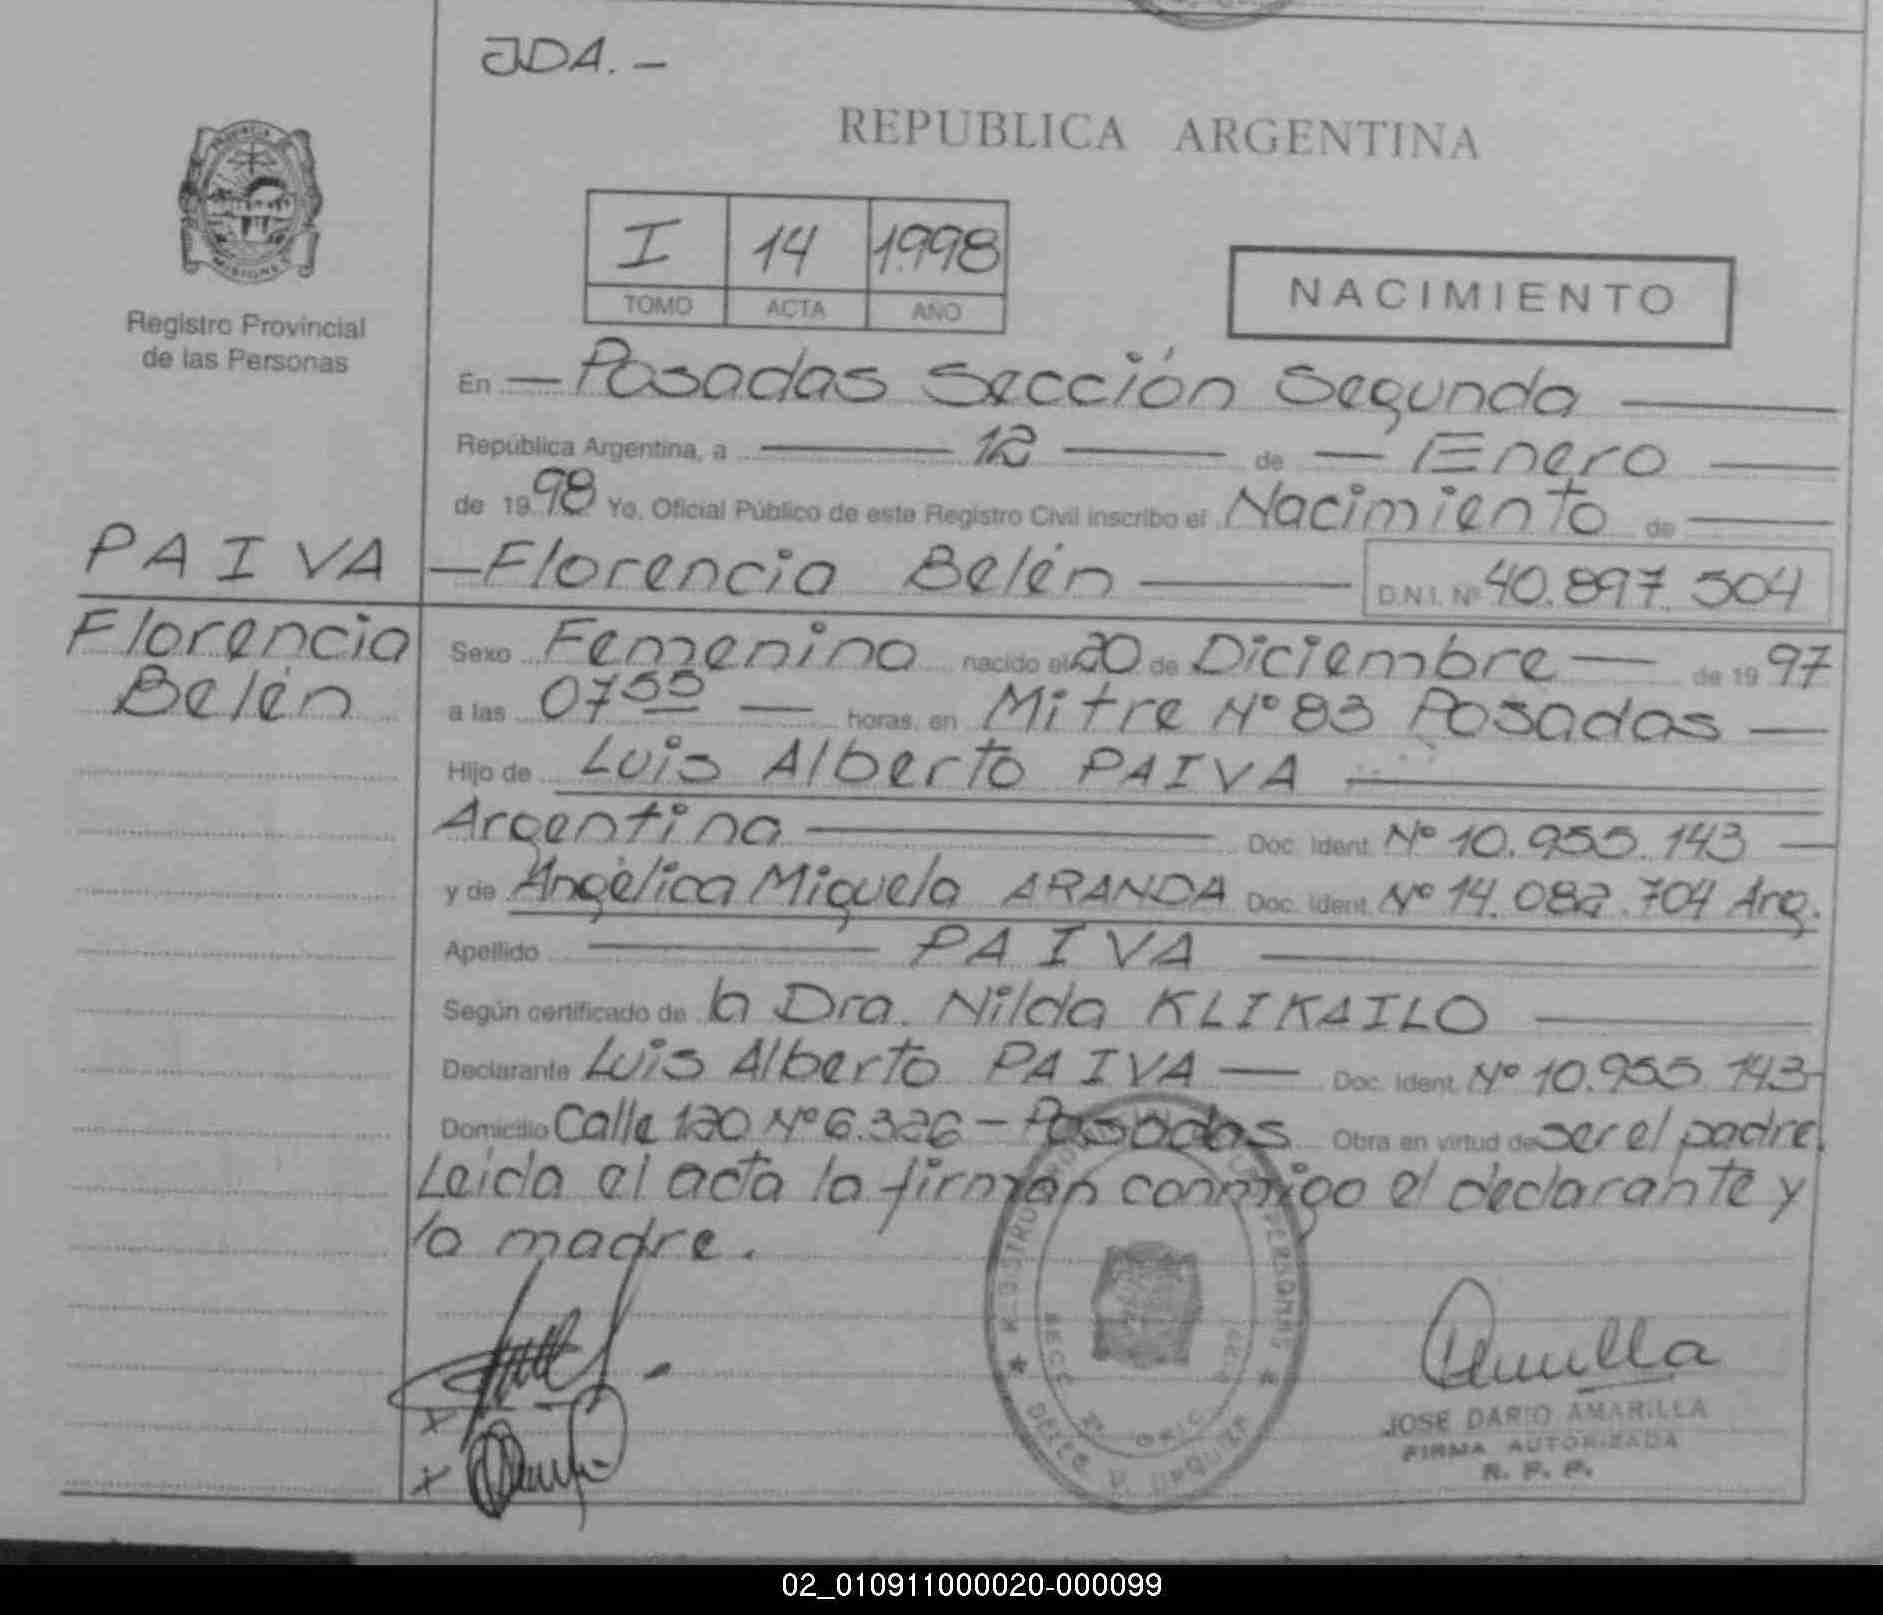 JDA.-
REPUBLICA ARGENTINA
MISIONES
Registro Provincial
de las Personas
I 14 1998
TOMO ACTA AÑO
NACIMIENTO
En Posadas Sección Segunda
República Argentina, a 12 de Enero
de 1998 Yo, Oficial Público de este Registro Civil inscribo el Nacimiento de
PAIVA
Florencia Belén D.N.I. Nº 40.897.504
Florencia
Belén
Sexo Femenino nacido el 20 de Diciembre de 1997
a las 0755 horas, en Mitre Nº 83 Posadas
Hijo de Luis Alberto PAIVA
Argentina Doc. Ident. Nº 10.955.143
y de Angélica Miguela ARANDA Doc. Ident. Nº 14.082.704 Arg.
Apellido PAIVA
Según certificado de la Dra. Nilda KLIKAILO
Declarante Luis Alberto PAIVA Doc. Ident. Nº 10.955.143
Domicilio Calle 120 Nº 6.326 - Posadas Obra en virtud de ser el padre.
Leida el acta la firman conmigo el declarante y
la madre.
JOSE DARIO AMARILLA
FIRMA AUTORIZADA
R. P. P.
02_010911000020-000099